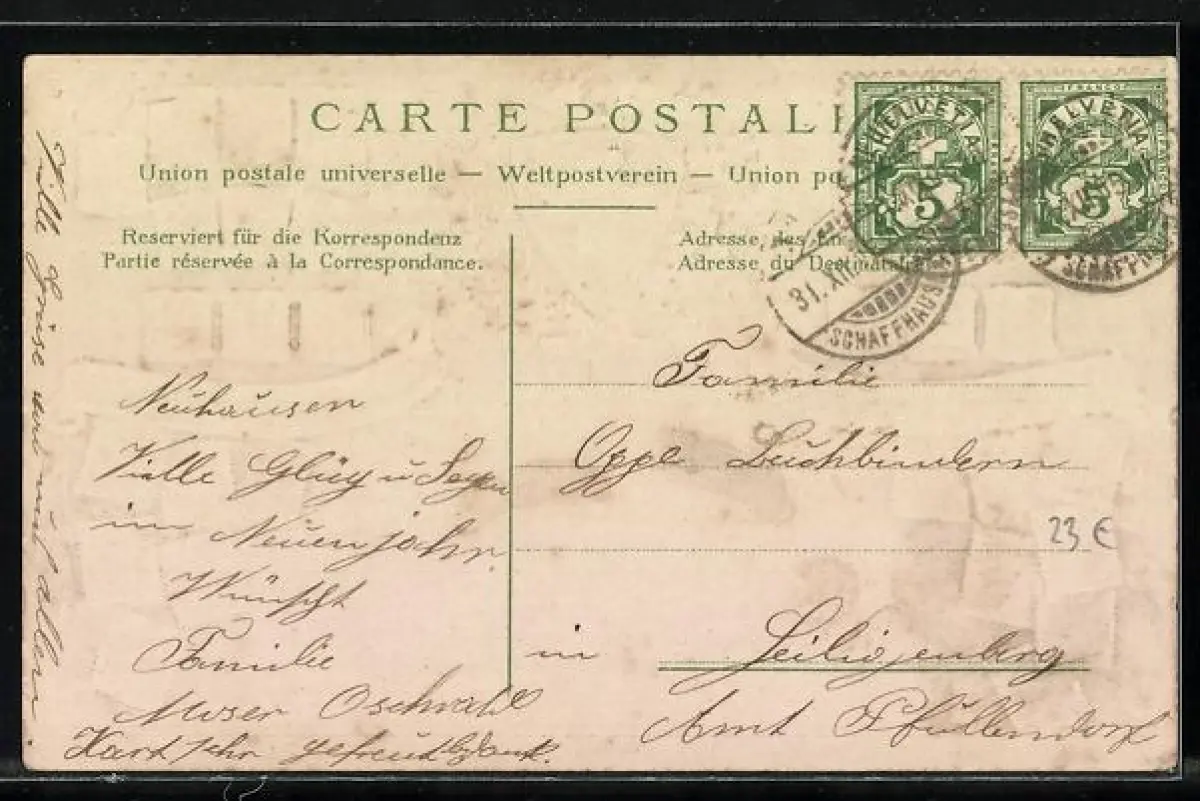 CARTE POSTAL
Union postale universelle — Weltpostverein — Union po
Reserviert für die Korrespondenz
Partie réservée à la Correspondance.
Adresse des Em
Adresse du Destinatai
FRANCO
HELVETIA
5
FRANCO
HELVETIA
5
31. XII
SCHAFFHAUS
SCHAFFH
Neuhausen
Ville Glüg u Segen
im Neuenjahr.
Wünscht
Familie
Moser Oschwald
Kart sehr gefreut Dank.
Ville Grüse von uns allen.
Familie
Oggl Buchbindern
23 €
in Heiligenberg
Amt Pfullendorf